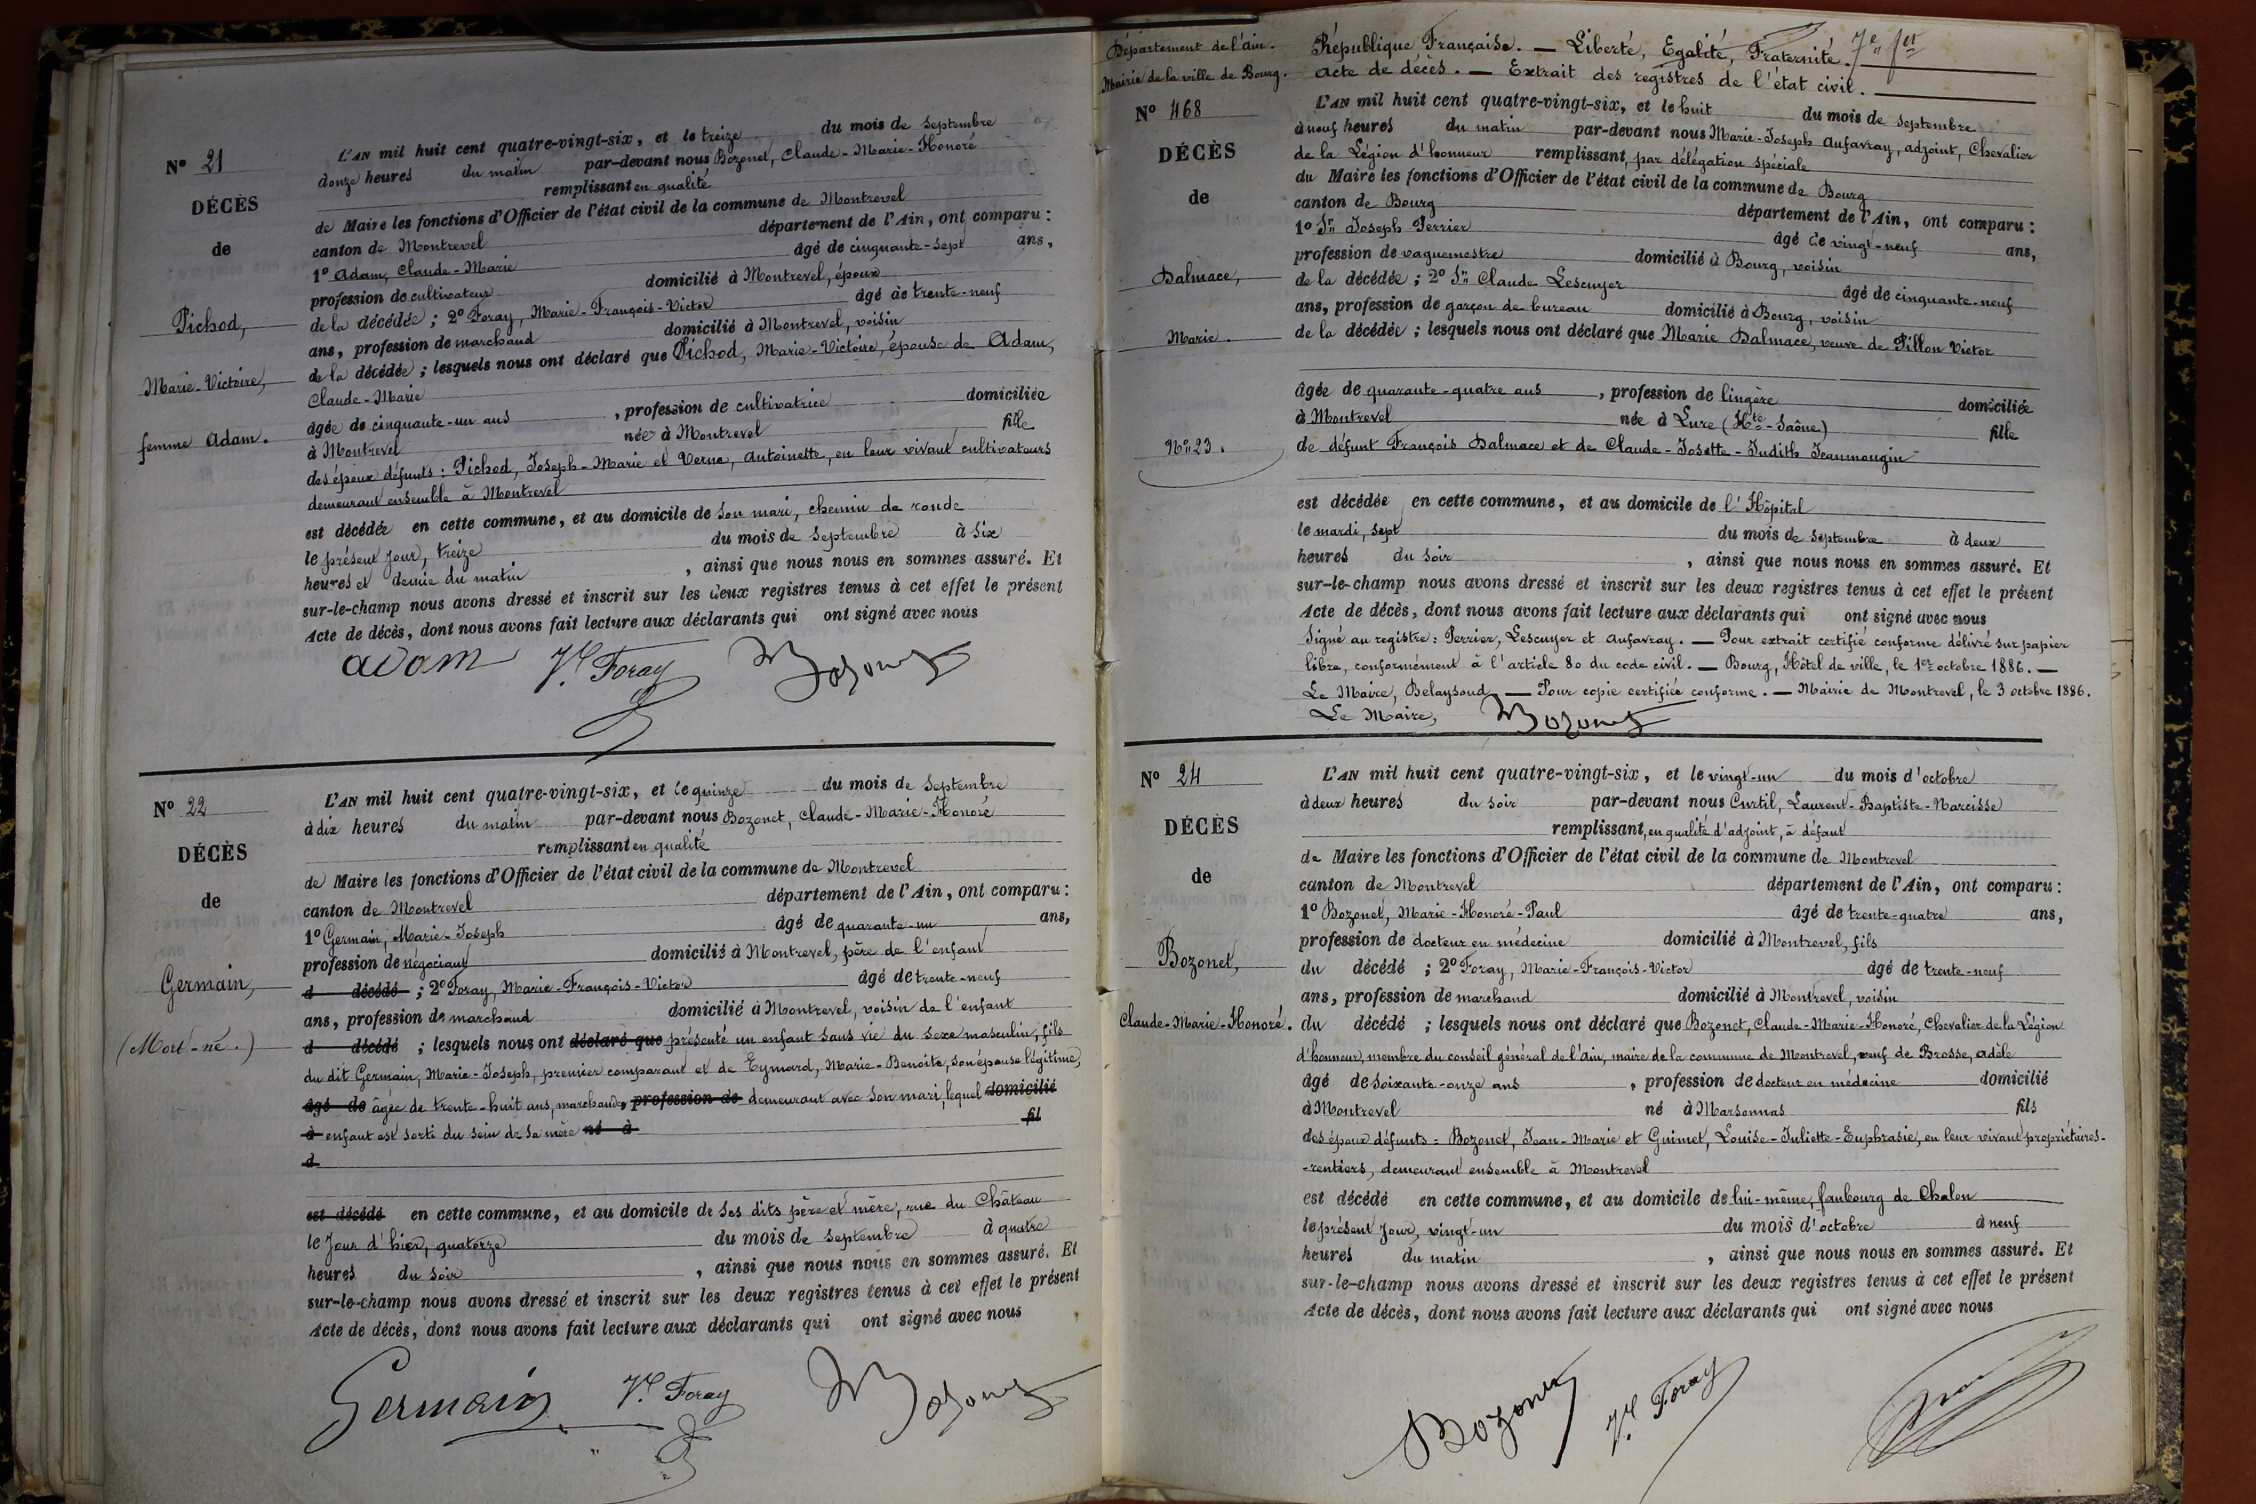 N° 21
DÉCÈS
de
Pichod,
Marie-Victoire,
femme Adam.
L'AN mil huit cent quatre-vingt-six, et le treize du mois de septembre
à onze heures du matin par-devant nous Bozonet, Claude-Marie-Honoré
remplissant en qualité
de Maire les fonctions d'Officier de l'état civil de la commune de Montrevel
canton de Montrevel département de l'Ain, ont comparu :
1° Adam, Claude-Marie âgé de cinquante-sept ans,
profession de cultivateur domicilié à Montrevel, époux
de la décédée ; 2° Foray, Marie-François-Victor âgé de trente-neuf
ans, profession de marchand domicilié à Montrevel, voisin
de la décédée ; lesquels nous ont déclaré que Pichod, Marie-Victoire, épouse de Adam,
Claude-Marie
âgée de cinquante-un ans , profession de cultivatrice domiciliée
à Montrevel née à Montrevel fille
des époux défunts : Pichod, Joseph-Marie et Verne, Antoinette, en leur vivant cultivateurs
demeurant ensemble à Montrevel
est décédée en cette commune, et au domicile de son mari, chemin de ronde
le présent jour, treize du mois de septembre à six
heures et demie du matin , ainsi que nous nous en sommes assuré. Et
sur-le-champ nous avons dressé et inscrit sur les deux registres tenus à cet effet le présent
Acte de décès, dont nous avons fait lecture aux déclarants qui ont signé avec nous
adam Vor Foray Bozonet
N° 22
DÉCÈS
de
Germain,
(Mort-né.)
L'AN mil huit cent quatre-vingt-six, et le quinze du mois de septembre
à dix heures du matin par-devant nous Bozonet, Claude-Marie-Honoré
remplissant en qualité
de Maire les fonctions d'Officier de l'état civil de la commune de Montrevel
canton de Montrevel département de l'Ain, ont comparu :
1° Germain, Marie-Joseph âgé de quarante-un ans,
profession de négociant domicilié à Montrevel, père de l'enfant
d décédé ; 2° Foray, Marie-François-Victor âgé de trente-neuf
ans, profession de marchand domicilié à Montrevel, voisin de l'enfant
d décédé ; lesquels nous ont déclaré que présenté un enfant sans vie du sexe masculin, fils
du dit Germain, Marie-Joseph, premier comparant et de Eymard, Marie-Benoite, son épouse légitime,
âgé de âgée de trente-huit ans, marchande, profession de demeurant avec son mari, lequel domicilié
à enfant est sorti du sein de sa mère né à fil
d
est décédé en cette commune, et au domicile de ses dits père et mère, rue du Château
le jour d'hier, quatorze du mois de septembre à quatre
heures du soir , ainsi que nous nous en sommes assuré. Et
sur-le-champ nous avons dressé et inscrit sur les deux registres tenus à cet effet le présent
Acte de décès, dont nous avons fait lecture aux déclarants qui ont signé avec nous
Germain Vor Foray Bozonet
Département de l'Ain.
Mairie de la ville de Bourg.
République Française. — Liberté, Egalité, Fraternité. 7e fet
Acte de décès. — Extrait des registres de l'état civil.
N° 468
DÉCÈS
de
Dalmace,
Marie.
N° 23.
L'AN mil huit cent quatre-vingt-six, et le huit du mois de septembre
à neuf heures du matin par-devant nous Marie-Joseph Aufavray, adjoint, Chevalier
de la Légion d'honneur remplissant, par délégation spéciale
du Maire les fonctions d'Officier de l'état civil de la commune de Bourg
canton de Bourg département de l'Ain, ont comparu :
1° Sr Joseph Perrier âgé de vingt-neuf ans,
profession de vaguemestre domicilié à Bourg, voisin
de la décédée ; 2° Sr Claude Lescuyer âgé de cinquante-neuf
ans, profession de garçon de bureau domicilié à Bourg, voisin
de la décédée ; lesquels nous ont déclaré que Marie Dalmace, veuve de Pillon Victor
âgée de quarante-quatre ans , profession de lingère domiciliée
à Montrevel née à Lure (Hte-Saône) fille
de défunt François Dalmace et de Claude-Josette-Judith Jeanmougin
est décédée en cette commune, et au domicile de l'Hôpital
le mardi, sept du mois de septembre à deux
heures du soir , ainsi que nous nous en sommes assuré. Et
sur-le-champ nous avons dressé et inscrit sur les deux registres tenus à cet effet le présent
Acte de décès, dont nous avons fait lecture aux déclarants qui ont signé avec nous
Signé au registre : Perrier, Lescuyer et Aufavray. — Pour extrait certifié conforme délivré sur papier
libre, conformément à l'article 80 du code civil. — Bourg, Hôtel de ville, le 1er octobre 1886. —
Le Maire, Belaysoud — Pour copie certifiée conforme. — Mairie de Montrevel, le 3 octobre 1886.
Le Maire, Bozonet
N° 24
DÉCÈS
de
Bozonet,
Claude-Marie-Honoré.
L'AN mil huit cent quatre-vingt-six, et le vingt-un du mois d'octobre
à deux heures du soir par-devant nous Curtil, Laurent-Baptiste-Narcisse
remplissant, en qualité d'adjoint, à défaut
de Maire les fonctions d'Officier de l'état civil de la commune de Montrevel
canton de Montrevel département de l'Ain, ont comparu :
1° Bozonet, Marie-Honoré-Paul âgé de trente-quatre ans,
profession de docteur en médecine domicilié à Montrevel, fils
du décédé ; 2° Foray, Marie-François-Victor âgé de trente-neuf
ans, profession de marchand domicilié à Montrevel, voisin
du décédé ; lesquels nous ont déclaré que Bozonet, Claude-Marie-Honoré, Chevalier de la Légion
d'honneur, membre du conseil général de l'Ain, maire de la commune de Montrevel, veuf de Brosse, Adèle
âgé de soixante-onze ans , profession de docteur en médecine domicilié
à Montrevel né à Marsonnas fils
des époux défunts : Bozonet, Jean-Marie et Guimet, Louise-Juliette-Euphrasie, en leur vivant propriétaires-
-rentiers, demeurant ensemble à Montrevel
est décédé en cette commune, et au domicile de lui-même, faubourg de Chalon
le présent jour, vingt-un du mois d'octobre à neuf
heures du matin , ainsi que nous nous en sommes assuré. Et
sur-le-champ nous avons dressé et inscrit sur les deux registres tenus à cet effet le présent
Acte de décès, dont nous avons fait lecture aux déclarants qui ont signé avec nous
Bozonet Vor Foray